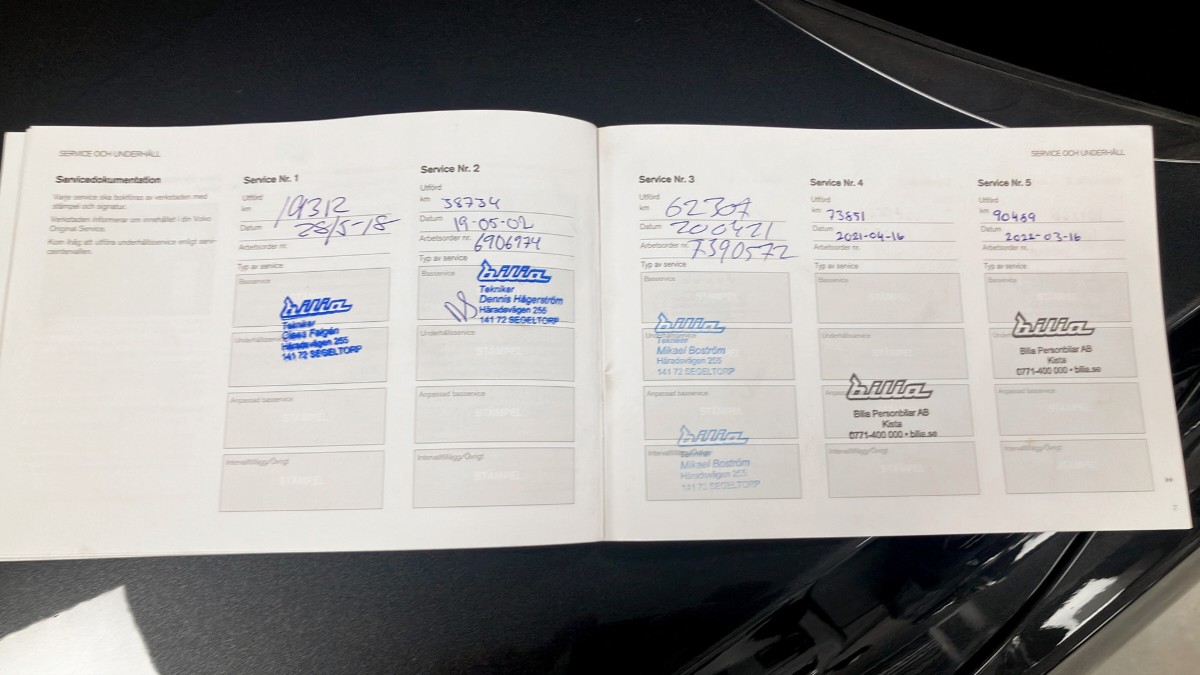 SERVICE OCH UNDERHÅLL
Servicedokumentation
Varje service ska bokföras av verkstaden med
stämpel och signatur.
Verkstaden informerar om innehållet i din Volvo
Original Service.
Kom ihåg att utföra underhållsservice enligt serv-
iceintervallen.
Service Nr. 1
Utförd
km 19312
Datum 28/5-18
Arbetsorder nr.
Typ av service
Basservice
bilia
Tekniker
Claes
Häradsvägen 255
141 72 SEGELTORP
Anpassad basservice
STÄMPEL
Intervalltillägg/Övrigt
STÄMPEL
Service Nr. 2
Utförd
km 38734
Datum 19-05-02
Arbetsorder nr. 6906974
Typ av service
Basservice
bilia
Tekniker
Dennis Hägerström
Häradsvägen 255
141 72 SEGELTORP
Underhållsservice
STÄMPEL
Anpassad basservice
STÄMPEL
Intervalltillägg/Övrigt
STÄMPEL
SERVICE OCH UNDERHÅLL
Service Nr. 3
Utförd
km 62307
Datum 200421
Arbetsorder nr. 7390572
Typ av service
Basservice
Underhållsservice
bilia
Tekniker
Mikael Boström
Häradsvägen 255
141 72 SEGELTORP
Anpassad basservice
STÄMPEL
Intervalltillägg/Övrigt
bilia
Tekniker
Mikael Boström
Häradsvägen 255
141 72 SEGELTORP
Service Nr. 4
Utförd
km 73851
Datum 2021-04-16
Arbetsorder nr.
Typ av service
Basservice
Underhållsservice
STÄMPEL
Anpassad basservice
bilia
Bilia Personbilar AB
Kista
0771-400 000 • bilia.se
Intervalltillägg/Övrigt
STÄMPEL
Service Nr. 5
Utförd
km 90469
Datum 2022-03-16
Arbetsorder nr.
Typ av service
Basservice
Underhållsservice
bilia
Bilia Personbilar AB
Kista
0771-400 000 • bilia.se
Anpassad basservice
STÄMPEL
Intervalltillägg/Övrigt
STÄMPEL